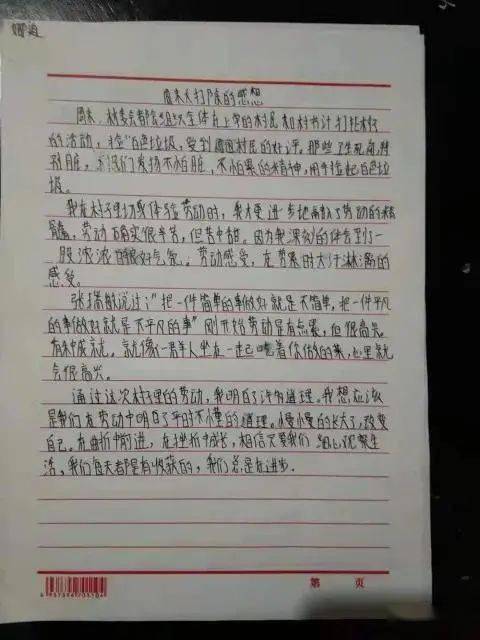 周末大扫除的感想
周末，林委会都会组织全体在上学的村民和村书计打扫村
的活动，捡白色垃圾，受到周围村民的好评，那些卫生死角特
别脏，孩们发扬不怕脏，不怕累的精神，用手捡起白色垃
圾。
我在村子里切身体验劳动时，我才更进步把融入了劳动的精
髓，劳动确实很辛苦，但苦中甜。因为我深刻的体会到了一
股浓浓的很好气氛。劳动感受，在劳累时大汗淋漓的
感受。
张瑞敏说过："把一件简单的事做好就是不简单，把一件平凡
的事做好就是不平凡的事"刚开始劳动是有点累，但很高兴
有种成就。就像一君羊人坐在一起吃着你做的菜，心里就
会很高兴。
通过这次村子里的劳动，我明白了许多道理。我想应该
是我们在劳动中明白了平时不懂的道理。慢慢的长大了，改变
自己。在曲折中前进，在挫折中成长，相信只要我们细心观察生
活，我们每天都是有收获的，我们总是在进步。
第 页